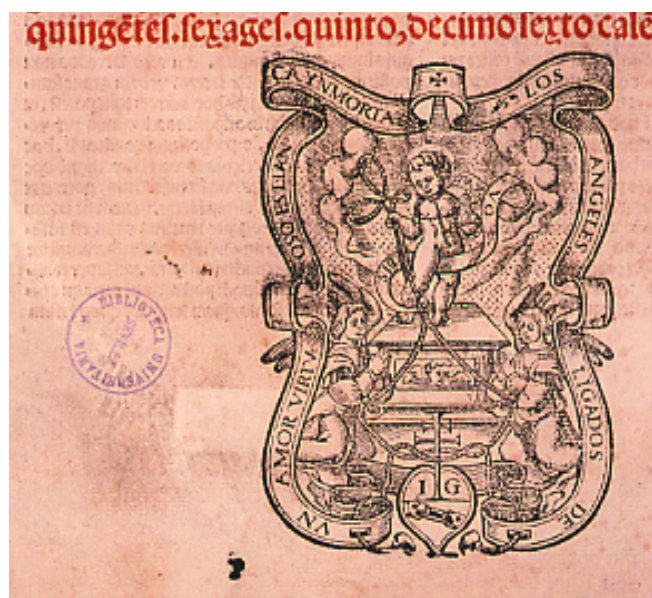 quingẽteſ.ſexageſ.quinto,decimo ſexto calẽ
LOS
ANGELES
LYGADOS
DE
VN
AMOR VIRTV
OSO ES LIAN
CA YNMORTA
I G
BIBLIOTECA
UNIVERSITARIA